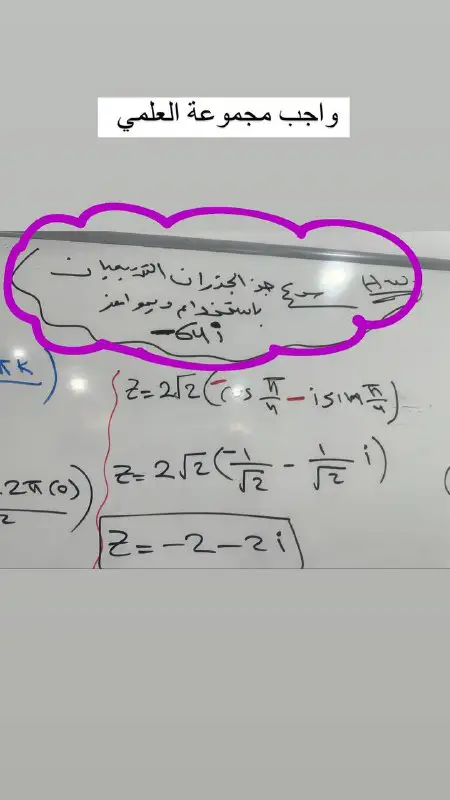 واجب مجموعة العلمي
H.W
جد الجذران التربيعيان
باستخدام ديموافر
-64i
πk)
Z=2√2(-cos π/4 - i sin π/4)
.2π(0))
2
Z=2√2(-1/√2 - 1/√2 i)
Z=-2-2i